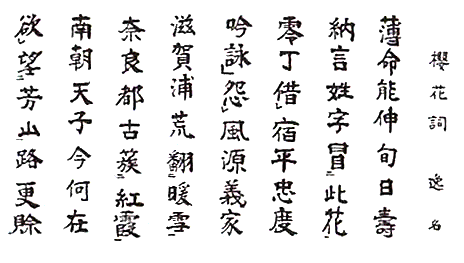 櫻花詞 逸名
薄命能伸旬日壽
納言姓字冒此花
零丁借宿平忠度
吟詠怨風源義家
滋賀浦荒翻暖雪
奈良都古簇紅霞
南朝天子今何在
欲望芳山路更賒